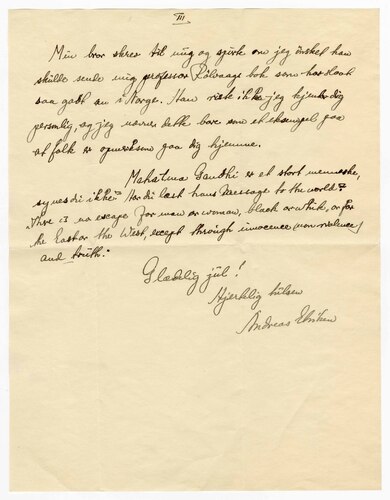 III
Min bror skrev til mig og spurte om jeg ønsket han
skulde sende mig professor Rölvaags bok som har slaat
saa godt an i Norge. Han visste ikke jeg kjendte dig
personlig, og jeg nævner dette bare som et eksempel paa
at folk er opmerksom paa dig hjemme.
Mahatma Gandhi er et stort menneske,
synes du ikke? Har du læst hans Message to the world?
"There is no escape for man or woman, black or white, or for
the East or the West, except through innocence (non-violence)
and truth."
Glædelig jul!
Hjertelig hilsen
Andreas